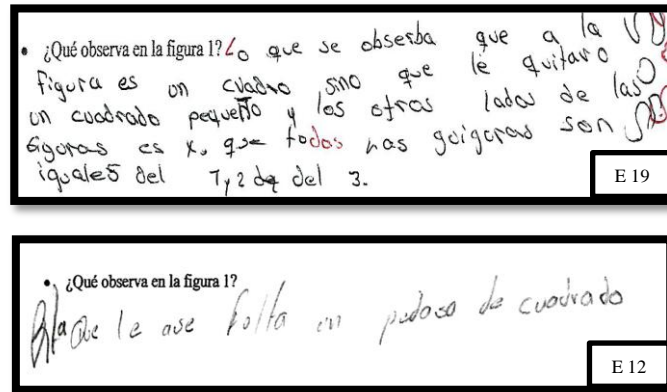 • ¿Qué observa en la figura 1? Lo que se obserba que a la
figura es un cuadro sino que le quitaro
un cuadrado pequeño y los otros lados de las
figuras es x, que todas las son
iguales del 1 y 2 de del 3.
E 19
• ¿Qué observa en la figura 1?
Que le ase falta un pedaso de cuadrado
E 12